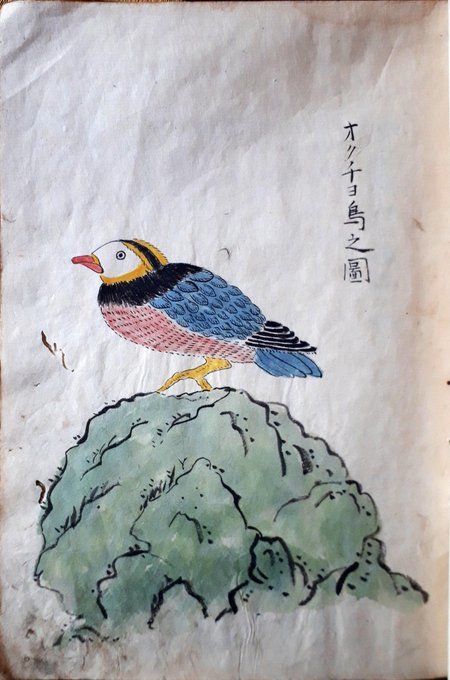 オクチヨ鳥之圖